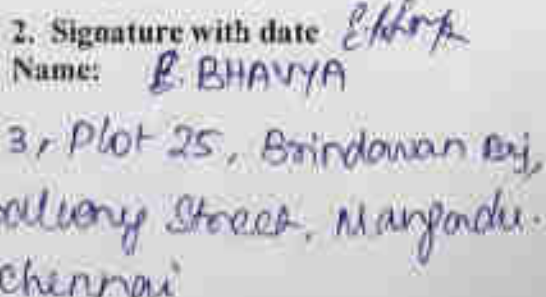 2. Signature with date
Name: E. BHAVYA
3, Plot 25, Brindavan
Street, Mangadu.
Chennai